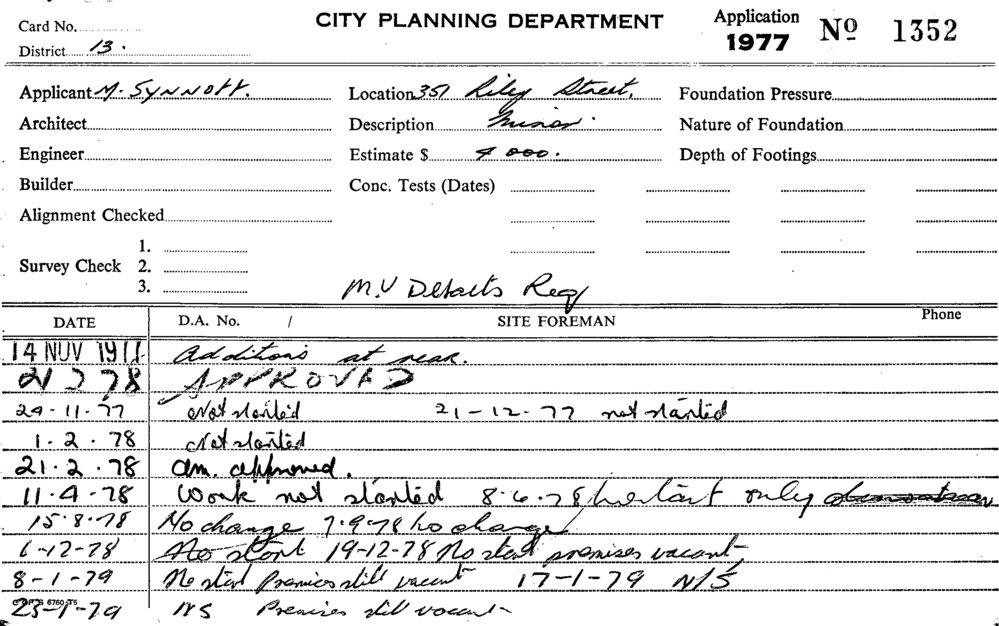 Card No.
District 13.
CITY PLANNING DEPARTMENT
Application 1977 No 1352
Applicant M. SYNNOTT. Location 351 Riley Street. Foundation Pressure
Architect Description Minor. Nature of Foundation
Engineer Estimate $ 4 000. Depth of Footings
Builder Conc. Tests (Dates)
Alignment Checked
Survey Check 1. 2. 3.
M.V Details Req
DATE D.A. No. / SITE FOREMAN Phone
14 NOV 1977 Additions at rear.
21 2 78 APPROVAD
24-11-77 Not started 21-12-77 not started
1.2.78 Not started
21.2.78 am. approved.
11.4.78 Work not started 8.6.78 only
15.8.78 No change 7.9.78 No change
6-12-78 No start 19-12-78 No start premises vacant
8-1-79 No start Premises still vacant 17-1-79 N/S
25-1-79 N/S Premises still vacant